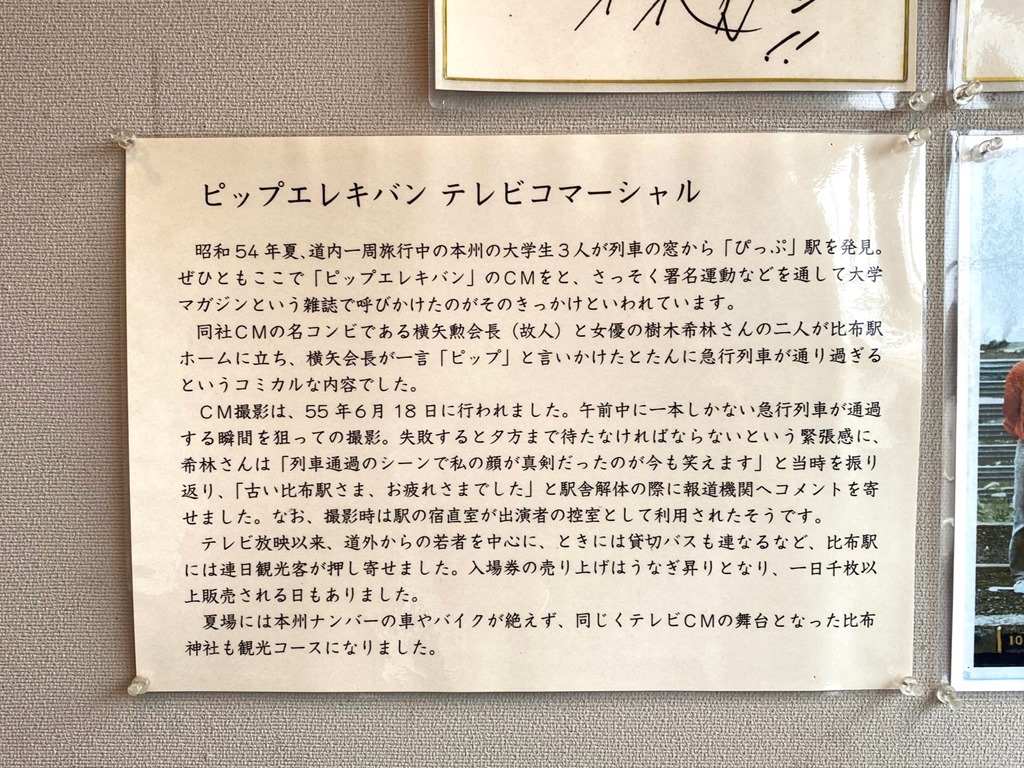 ピップエレキバン テレビコマーシャル
昭和54年夏、道内一周旅行中の本州の大学生3人が列車の窓から「ぴっぷ」駅を発見。
ぜひともここで「ピップエレキバン」のCMをと、さっそく署名運動などを通して大学
マガジンという雑誌で呼びかけたのがそのきっかけといわれています。
同社CMの名コンビである横矢勲会長（故人）と女優の樹木希林さんの二人が比布駅
ホームに立ち、横矢会長が一言「ピップ」と言いかけたとたんに急行列車が通り過ぎる
というコミカルな内容でした。
CM撮影は、55年6月18日に行われました。午前中に一本しかない急行列車が通過
する瞬間を狙っての撮影。失敗すると夕方まで待たなければならないという緊張感に、
希林さんは「列車通過のシーンで私の顔が真剣だったのが今も笑えます」と当時を振り
返り、「古い比布駅さま、お疲れさまでした」と駅舎解体の際に報道機関へコメントを寄
せました。なお、撮影時は駅の宿直室が出演者の控室として利用されたそうです。
テレビ放映以来、道外からの若者を中心に、ときには貸切バスも連なるなど、比布駅
には連日観光客が押し寄せました。入場券の売り上げはうなぎ昇りとなり、一日千枚以
上販売される日もありました。
夏場には本州ナンバーの車やバイクが絶えず、同じくテレビCMの舞台となった比布
神社も観光コースになりました。
10